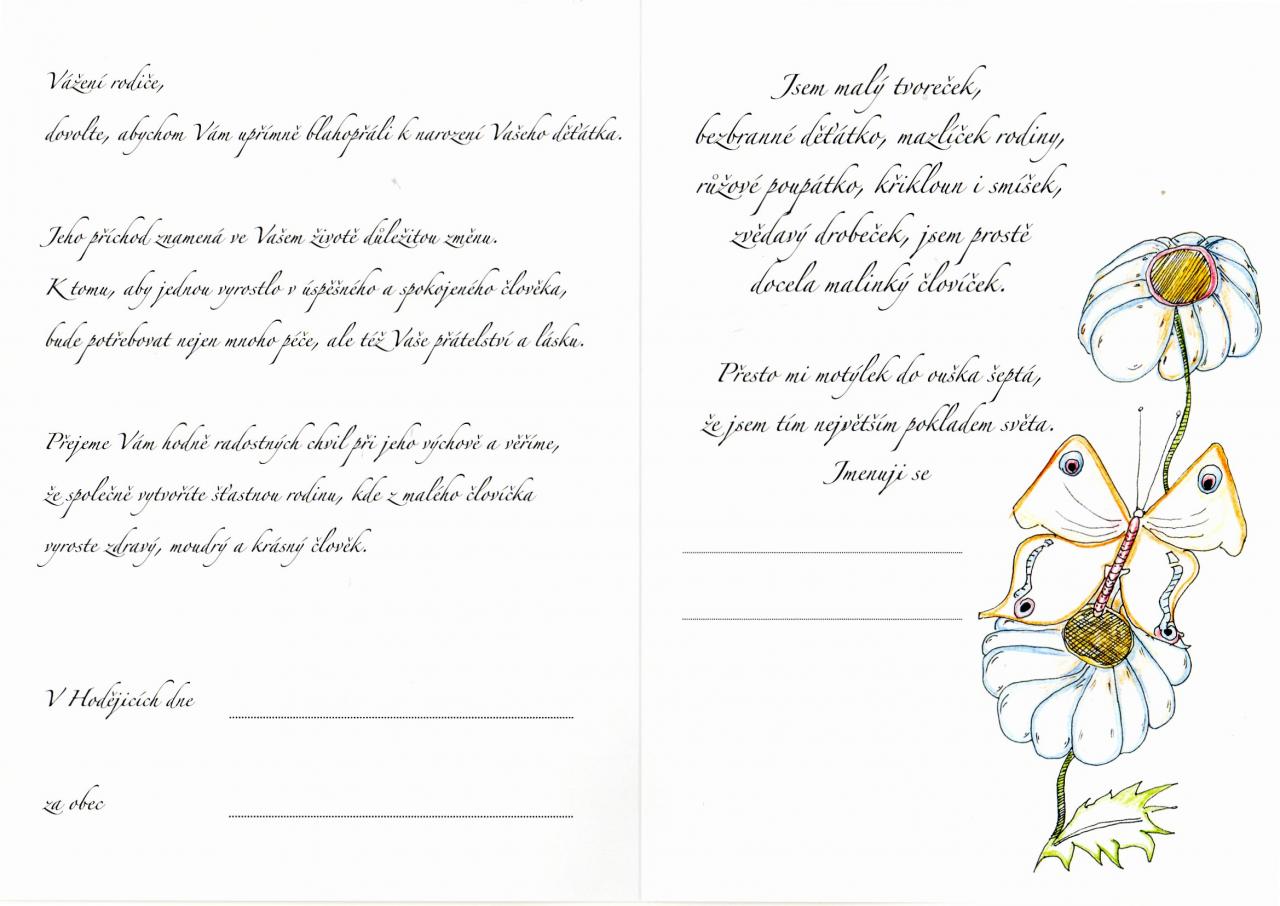 Vážení rodiče,
dovolte, abychom Vám upřímně blahopřáli k narození Vašeho děťátka.
Jeho příchod znamená ve Vašem životě důležitou změnu.
K tomu, aby jednou vyrostlo v úspěšného a spokojeného člověka,
bude potřebovat nejen mnoho péče, ale též Vaše přátelství a lásku.
Přejeme Vám hodně radostných chvil při jeho výchově a věříme,
že společně vytvoříte šťastnou rodinu, kde z malého človíčka
vyroste zdravý, moudrý a krásný člověk.
V Hodějicích dne
za obec
Jsem malý tvoreček,
bezbranné děťátko, mazlíček rodiny,
růžové poupátko, křikloun i smíšek,
zvědavý drobeček, jsem prostě
docela malinký človíček.
Přesto mi motýlek do ouška šeptá,
že jsem tím největším pokladem světa.
Jmenuji se